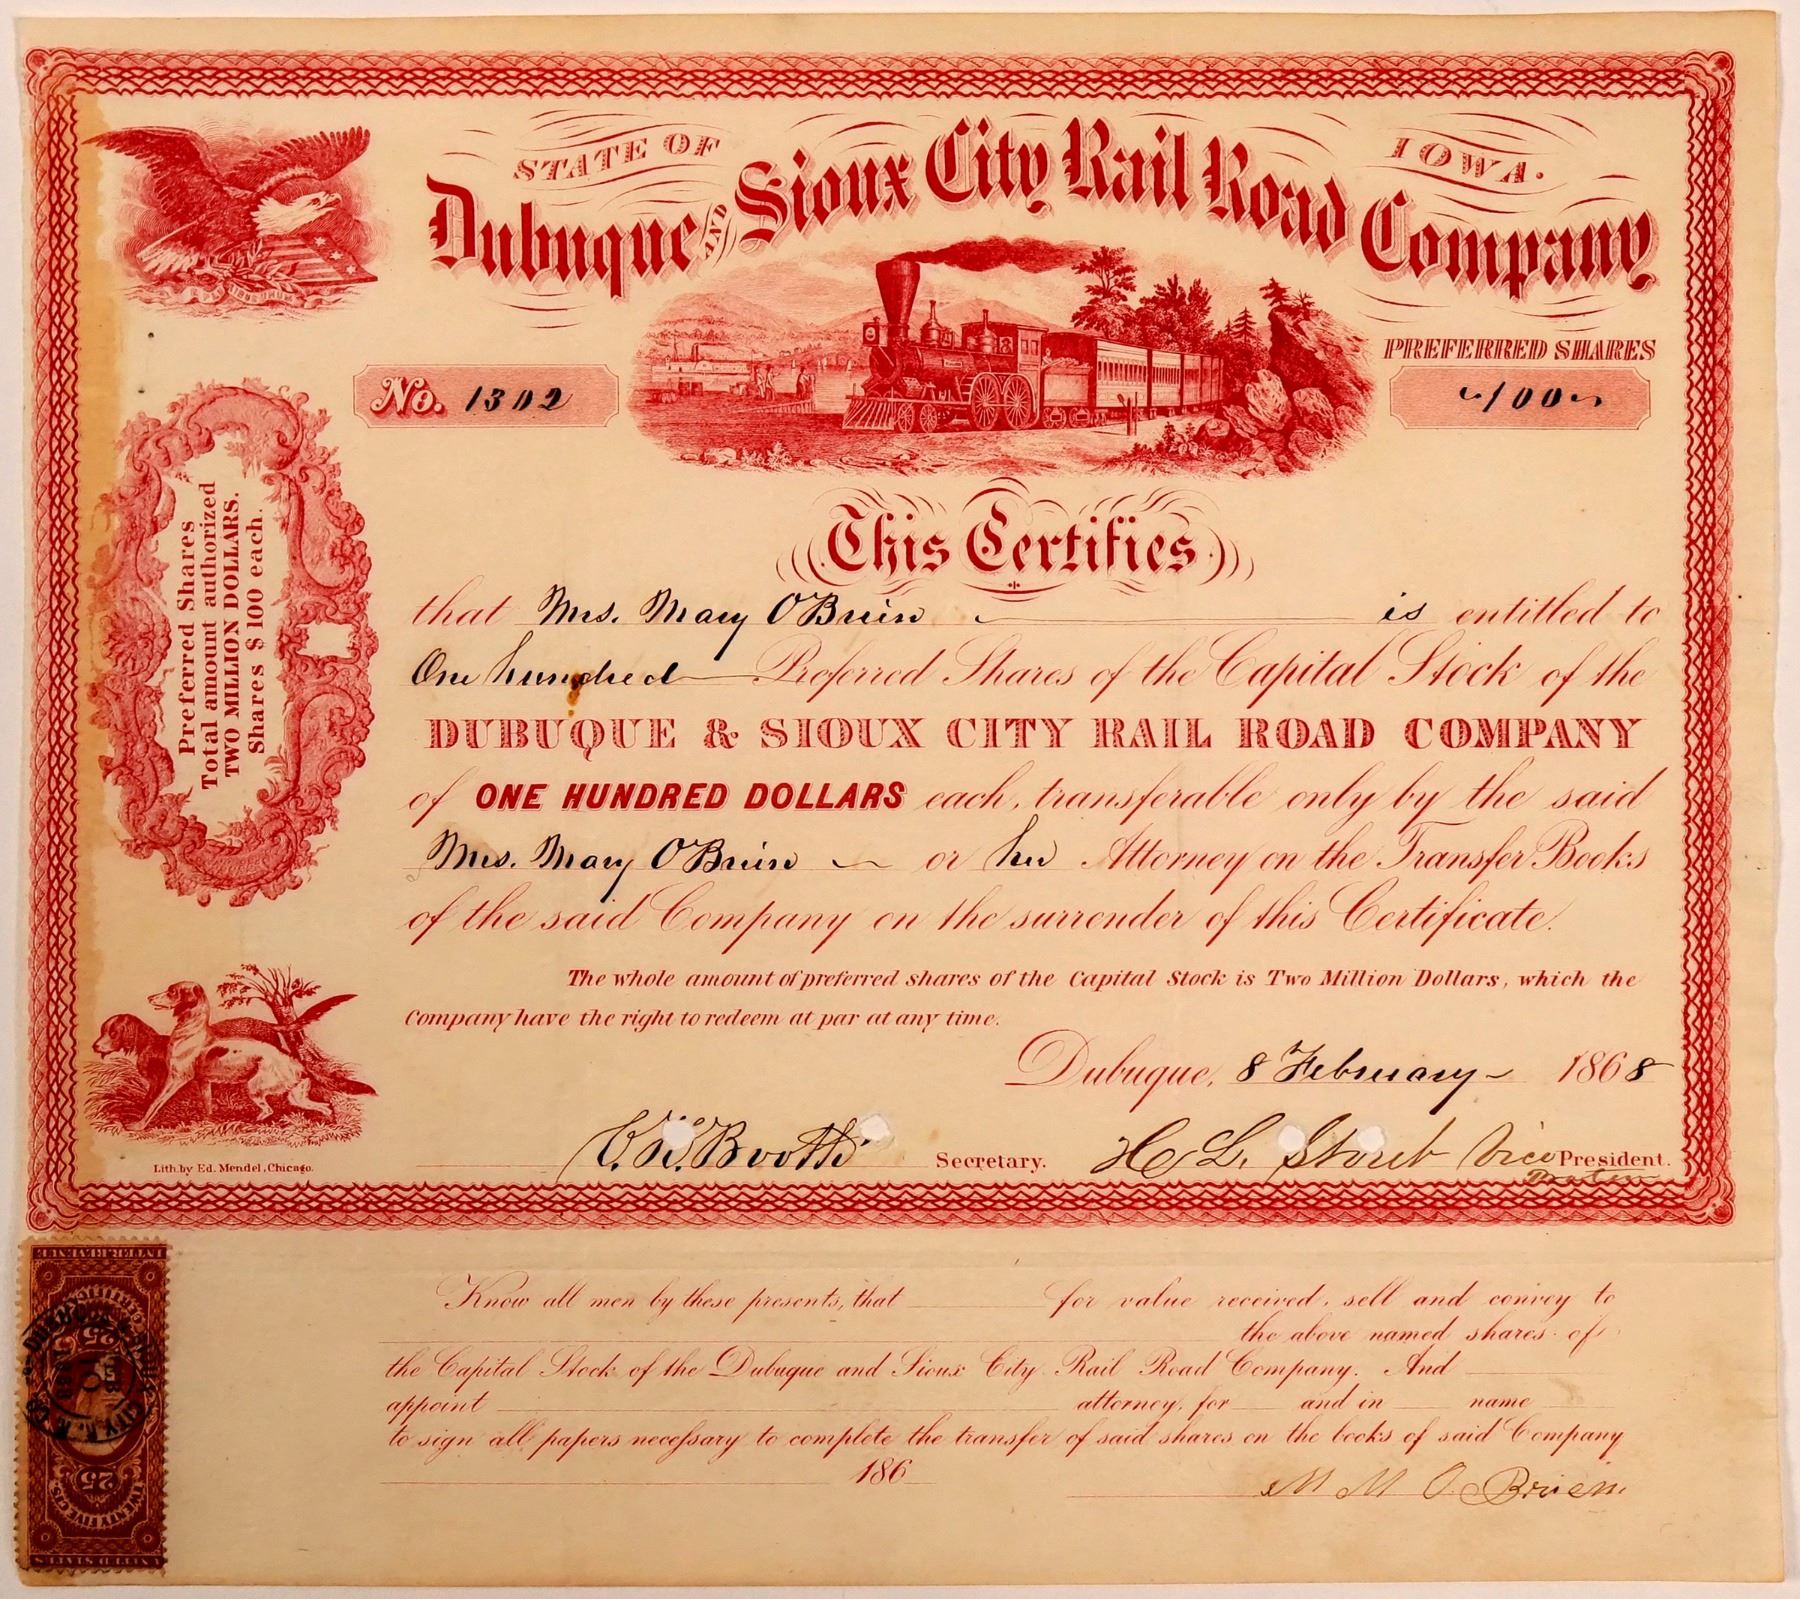 STATE OF IOWA.
Dubuque AND Sioux City Rail Road Company
PREFERRED SHARES
No. 1302
100
Preferred Shares
Total amount authorized
TWO MILLION DOLLARS.
Shares $100 each.
This Certifies
that Mrs. Mary O'Brien is entitled to
One hundred Preferred Shares of the Capital Stock of the
DUBUQUE & SIOUX CITY RAIL ROAD COMPANY
of ONE HUNDRED DOLLARS each, transferable only by the said
Mrs. Mary O'Brien or her Attorney on the Transfer Books
of the said Company on the surrender of this Certificate.
The whole amount of preferred shares of the Capital Stock is Two Million Dollars, which the
Company have the right to redeem at par at any time.
Dubuque, 8 February 1868
Booth Secretary. H L. Stout Vice President.
Lith. by Ed. Mendel, Chicago.
Know all men by these presents, that for value received, sell and convey to
the above named shares of
the Capital Stock of the Dubuque and Sioux City Rail Road Company. And
appoint attorney, for and in name
to sign all papers necessary to complete the transfer of said shares on the books of said Company
186
M M O'Brien
INTER. REVENUE
25
25
TWENTY FIVE CTS.
UNITED STATES